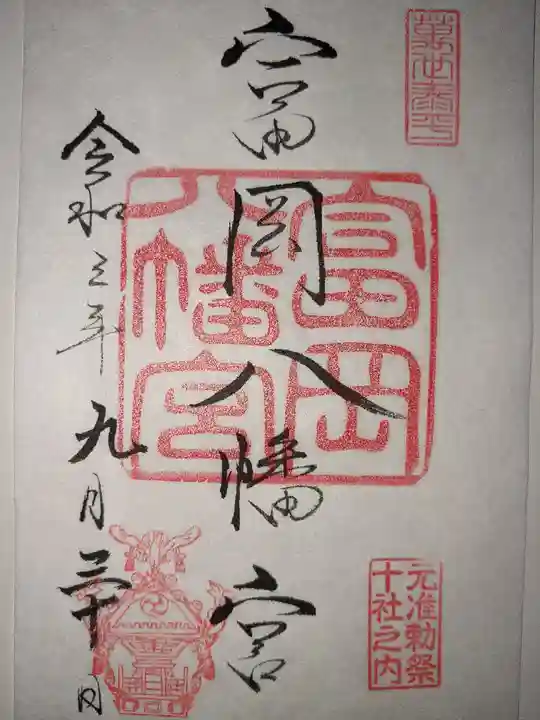 萬世泰平
富岡八幡宮
富岡
八幡宮
元准勅祭
十社之内
令和三年九月三十日